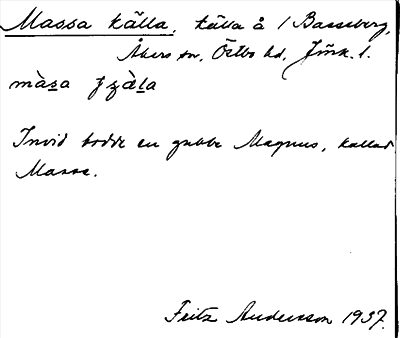 Massa källa, källa å 1 Basseberg,
Åkers sn, Östbo hd, Jönk. l.
màsa
Invid bodde en gubbe Magnus, kallad
Masse.
Fritz Andersson 1937.